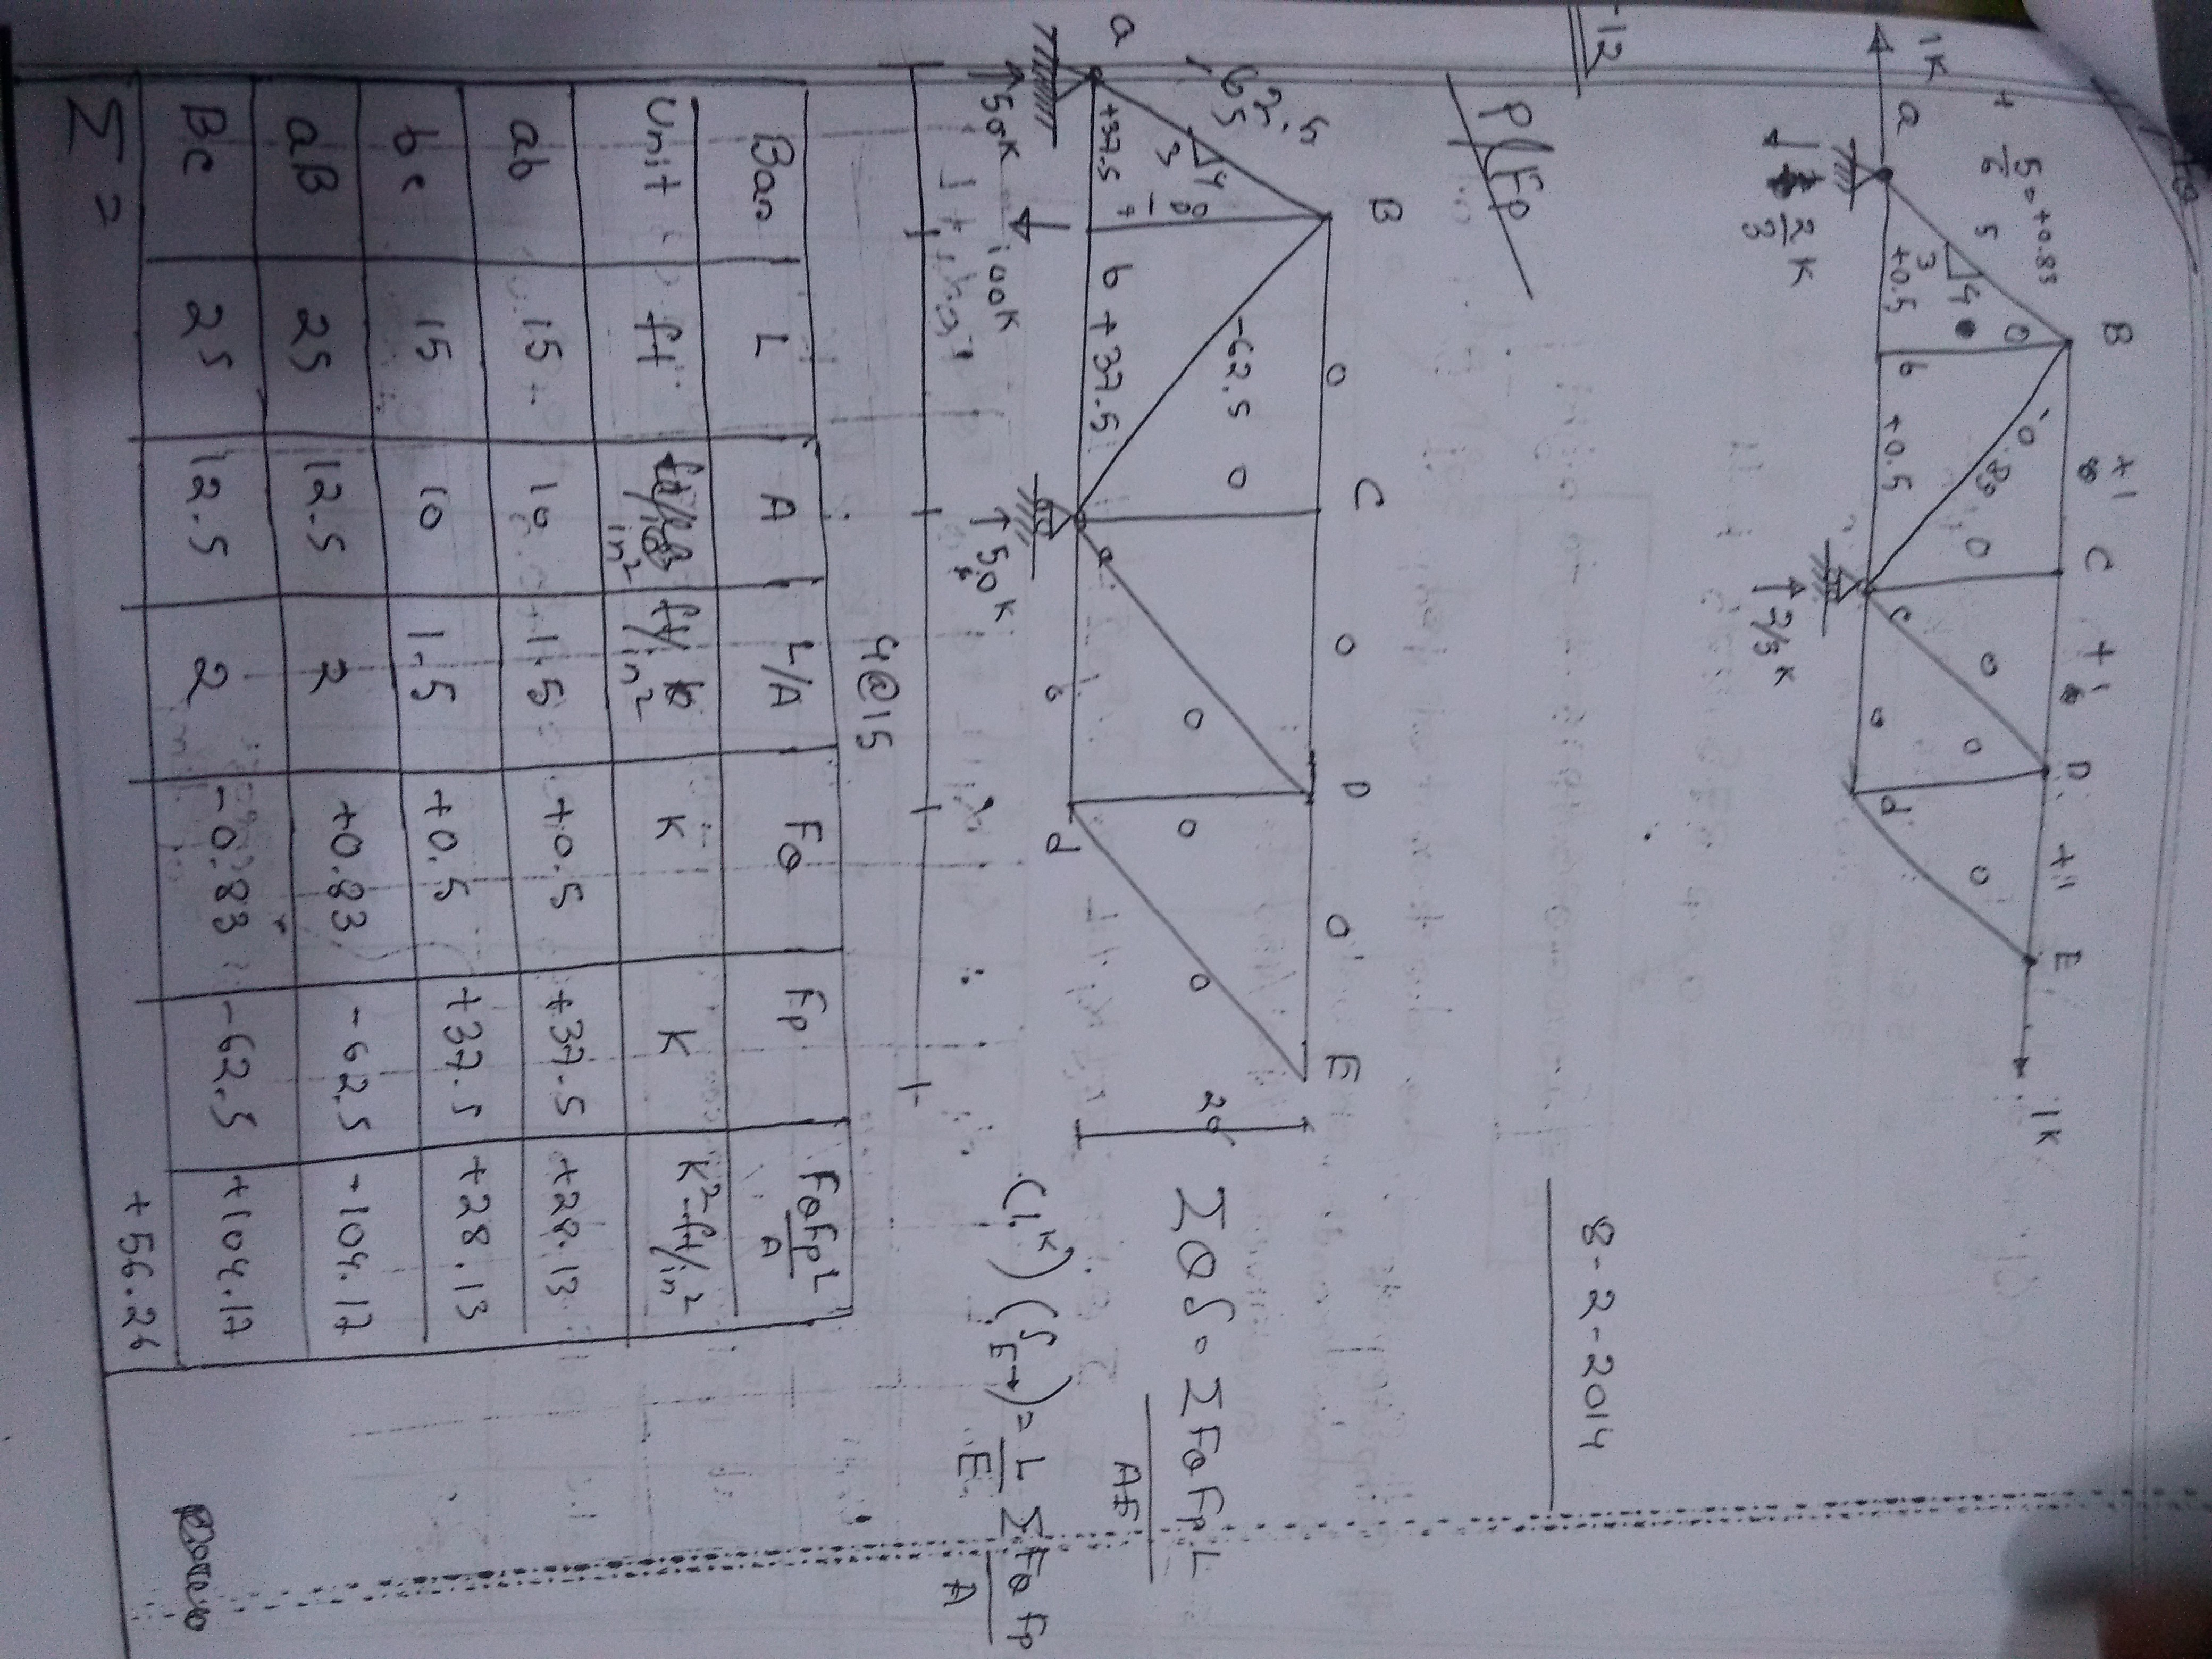 -12
1K
a
+ 5/6 50+0.83
5
3
4
+0.5
0
B
b
+0.5
-0.83
+1
0
C
c
+1
0
0
0
D
d
+1
0
E
1K
2/3 K
2/3 K
8-2-2014
P/Fp
a
62.5
3
4
+37.5
B
b
+37.5
-62.5
0
0
C
c
0
0
0
D
d
0
0
0
E
20'
50K
100K
50K
4@15
ΣQδ = ΣFQFpL
AE
(1K)(δE→) = L/E Σ FQ Fp/A
Bar L A L/A FQ Fp FQFpL/A
Unit ft in2 ft/in2 K K K2-ft/in2
ab 15 10 1.5 +0.5 +37.5 +28.13
bc 15 10 1.5 +0.5 +37.5 +28.13
aB 25 12.5 2 +0.83 -62.5 -104.17
Bc 25 12.5 2 -0.83 -62.5 +104.17
Σ = +56.26